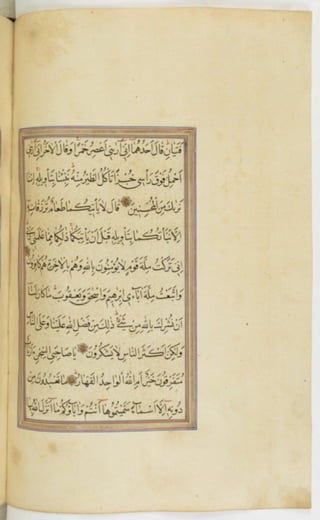 فَتَيَانِ قَالَ أَحَدُهُمَا إِنِّي أَرٰنِي أَعْصِرُ خَمْرًا وَقَالَ الْآخَرُ إِنِّي أَرٰنِي
أَحْمِلُ فَوْقَ رَأْسِي خُبْزًا تَأْكُلُ الطَّيْرُ مِنْهُ نَبِّئْنَا بِتَأْوِيلِهِ إِنَّا
نَرٰىكَ مِنَ الْمُحْسِنِينَ قَالَ لَا يَأْتِيكُمَا طَعَامٌ تُرْزَقَانِهِ
إِلَّا نَبَّأْتُكُمَا بِتَأْوِيلِهِ قَبْلَ أَنْ يَأْتِيَكُمَا ذٰلِكُمَا مِمَّا عَلَّمَنِي رَبِّي
إِنِّي تَرَكْتُ مِلَّةَ قَوْمٍ لَا يُؤْمِنُونَ بِاللهِ وَهُمْ بِالْآخِرَةِ هُمْ كَافِرُونَ
وَاتَّبَعْتُ مِلَّةَ آبَاءِي إِبْرٰهِيمَ وَإِسْحٰقَ وَيَعْقُوبَ مَا كَانَ لَنَا
أَنْ نُشْرِكَ بِاللهِ مِنْ شَيْءٍ ذٰلِكَ مِنْ فَضْلِ اللهِ عَلَيْنَا وَعَلَى النَّاسِ
وَلٰكِنَّ أَكْثَرَ النَّاسِ لَا يَشْكُرُونَ يَا صَاحِبَيِ السِّجْنِ ءَأَرْبَابٌ
مُتَفَرِّقُونَ خَيْرٌ أَمِ اللهُ الْوَاحِدُ الْقَهَّارُ مَا تَعْبُدُونَ مِنْ
دُونِهِ إِلَّا أَسْمَاءً سَمَّيْتُمُوهَا أَنْتُمْ وَآبَاؤُكُمْ مَا أَنْزَلَ اللهُ بِهَا